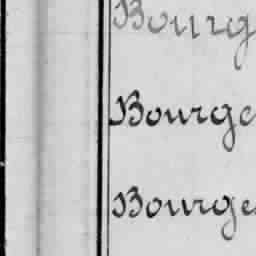 Bourg
Bourge
Bourge